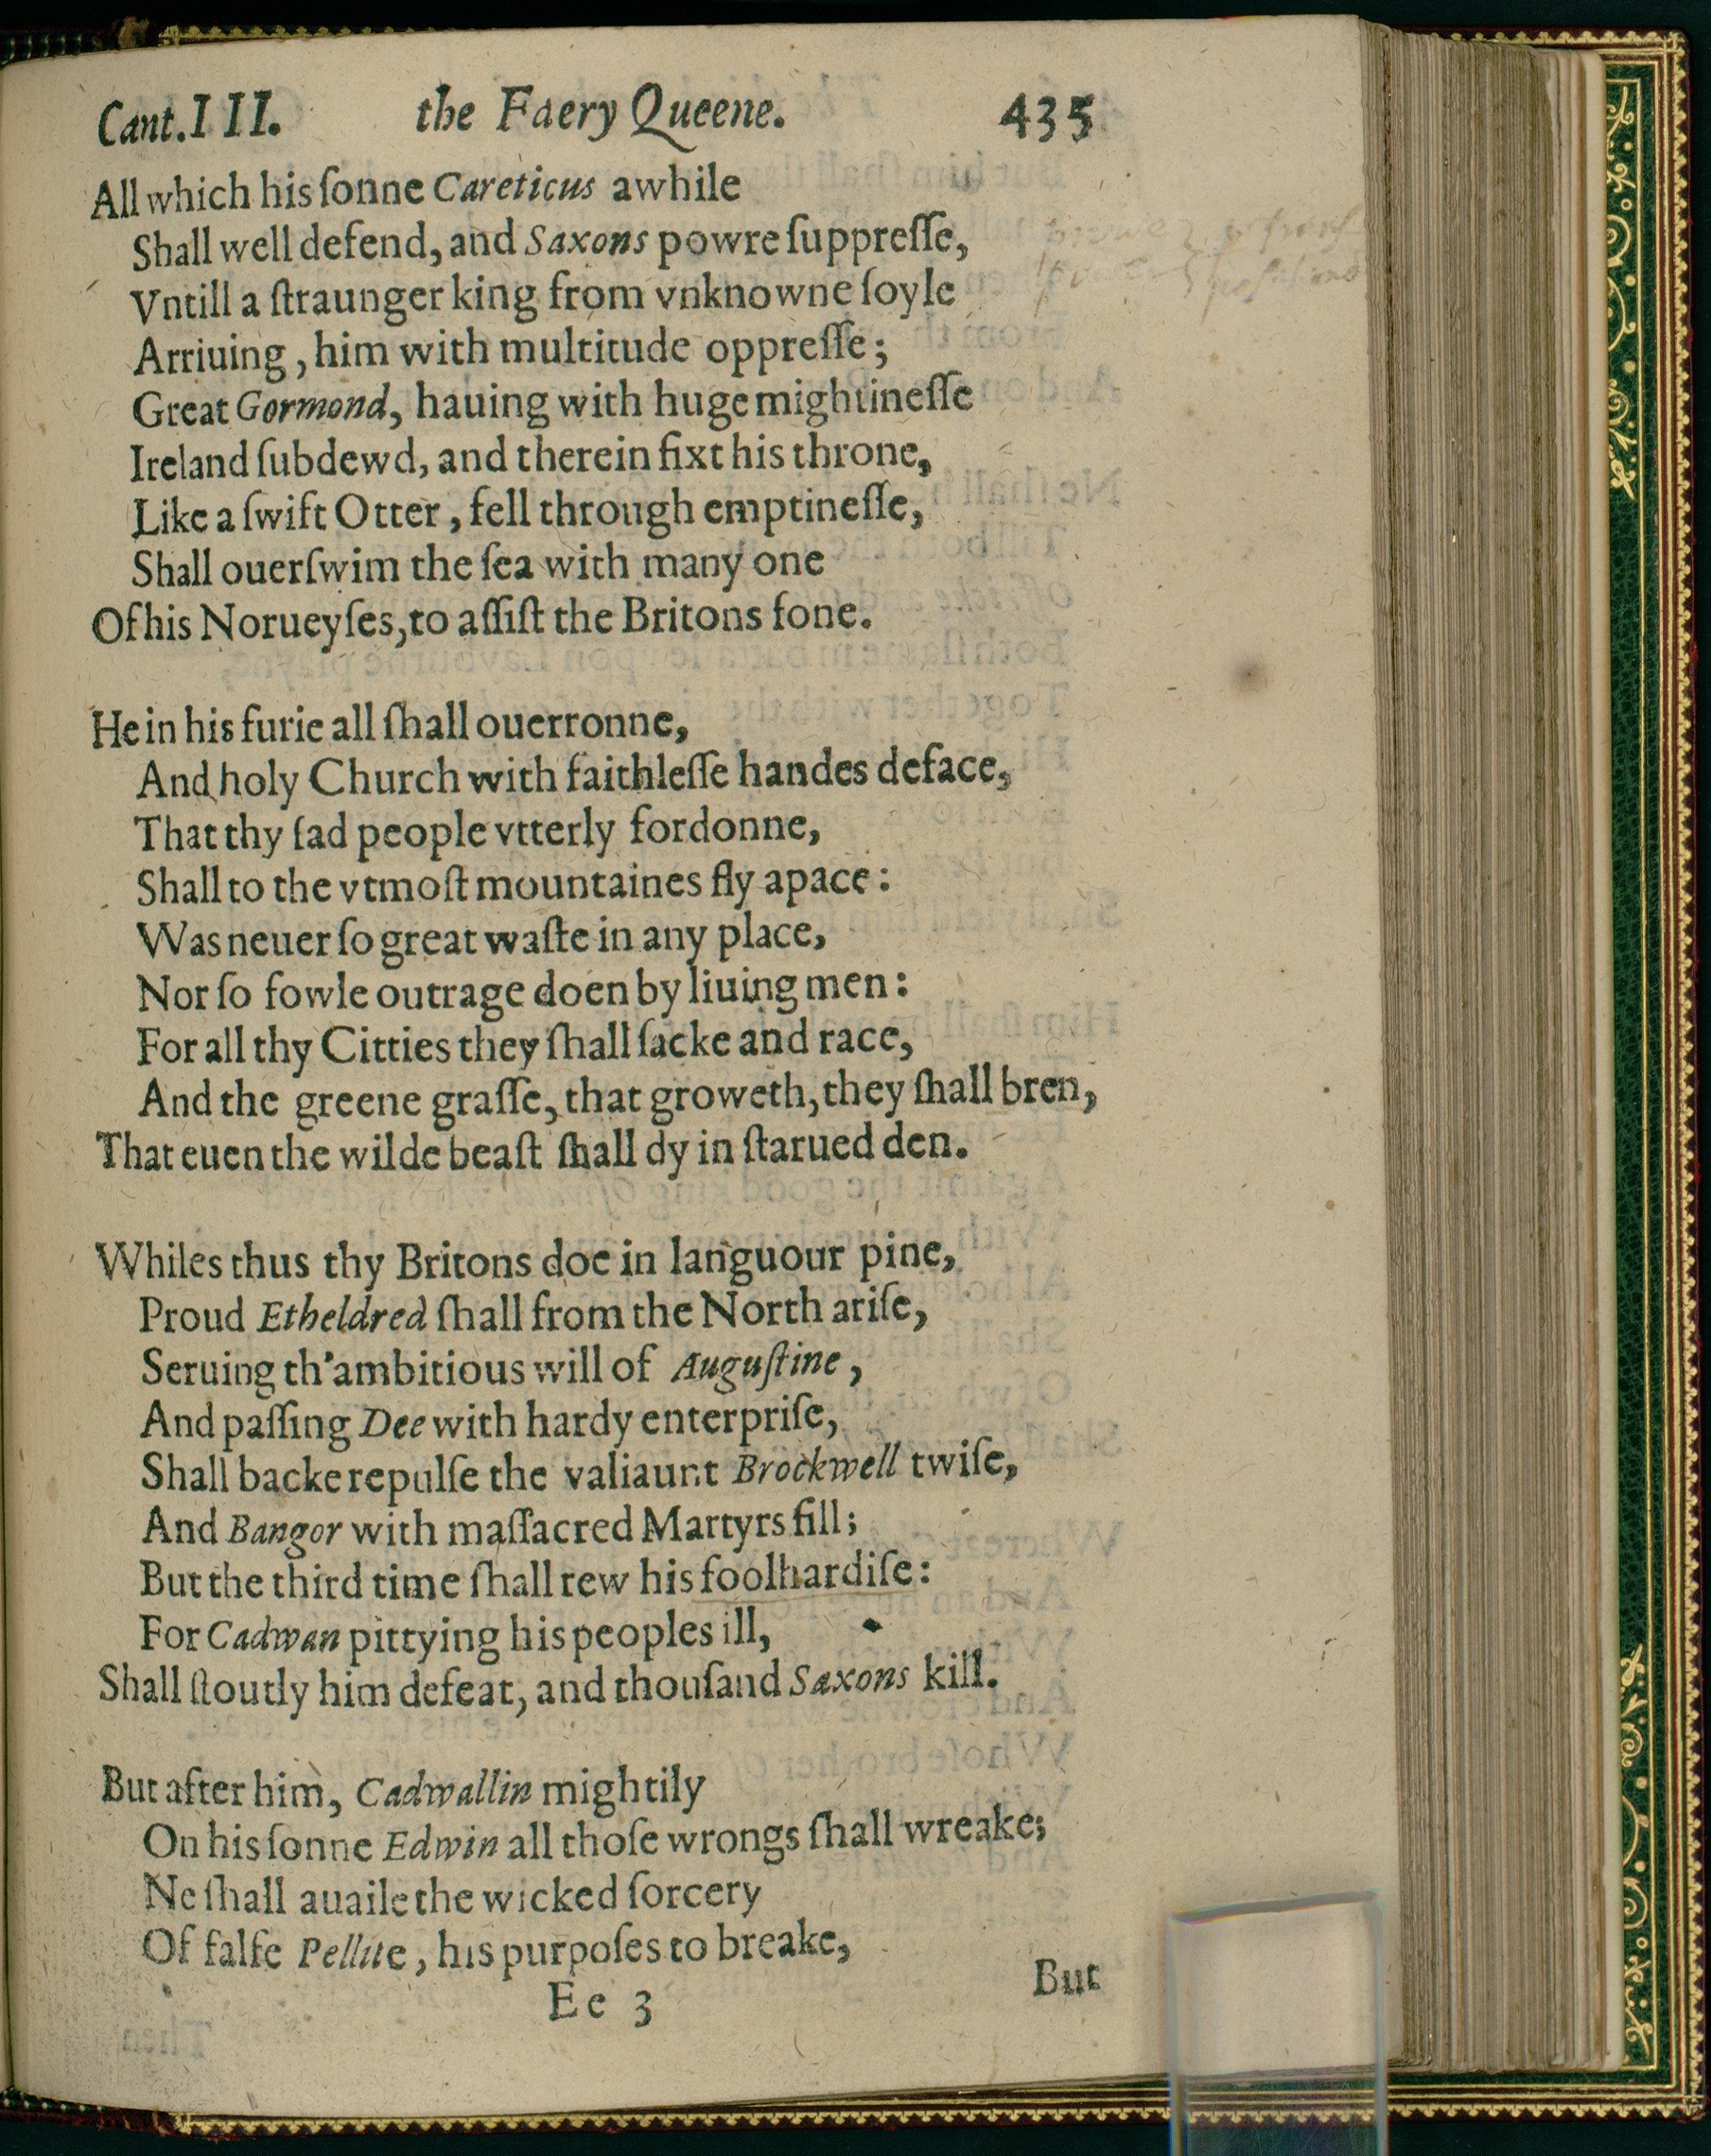 Cant. III. the Faery Queene. 435
All which his ſonne Careticus awhile
Shall well defend, and Saxons powre ſuppreſſe,
Vntill a ſtraunger king from vnknowne ſoyle
Arriuing, him with multitude oppreſſe;
Great Gormond, hauing with huge mightineſſe
Ireland ſubdewd, and therein fixt his throne,
Like a ſwift Otter, fell through emptineſſe,
Shall ouerſwim the ſea with many one
Of his Norueyſes, to aſſiſt the Britons fone.
He in his furie all ſhall ouerronne,
And holy Church with faithleſſe handes deface,
That thy ſad people vtterly fordonne,
Shall to the vtmoſt mountaines fly apace:
Was neuer ſo great waſte in any place,
Nor ſo fowle outrage doen by liuing men:
For all thy Citties they ſhall ſacke and race,
And the greene graſſe, that groweth, they ſhall bren,
That euen the wilde beaſt ſhall dy in ſtarued den.
Whiles thus thy Britons doe in languour pine,
Proud Etheldred ſhall from the North ariſe,
Seruing th'ambitious will of Auguſtine,
And paſſing Dee with hardy enterpriſe,
Shall backe repulſe the valiaunt Brockwell twiſe,
And Bangor with maſſacred Martyrs fill;
But the third time ſhall rew his foolhardiſe:
For Cadwan pittying his peoples ill,
Shall ſtoutly him defeat, and thouſand Saxons kill.
But after him, Cadwallin mightily
On his ſonne Edwin all thoſe wrongs ſhall wreake;
Ne ſhall auaile the wicked ſorcery
Of falſe Pellite, his purpoſes to breake,
Ee 3 But